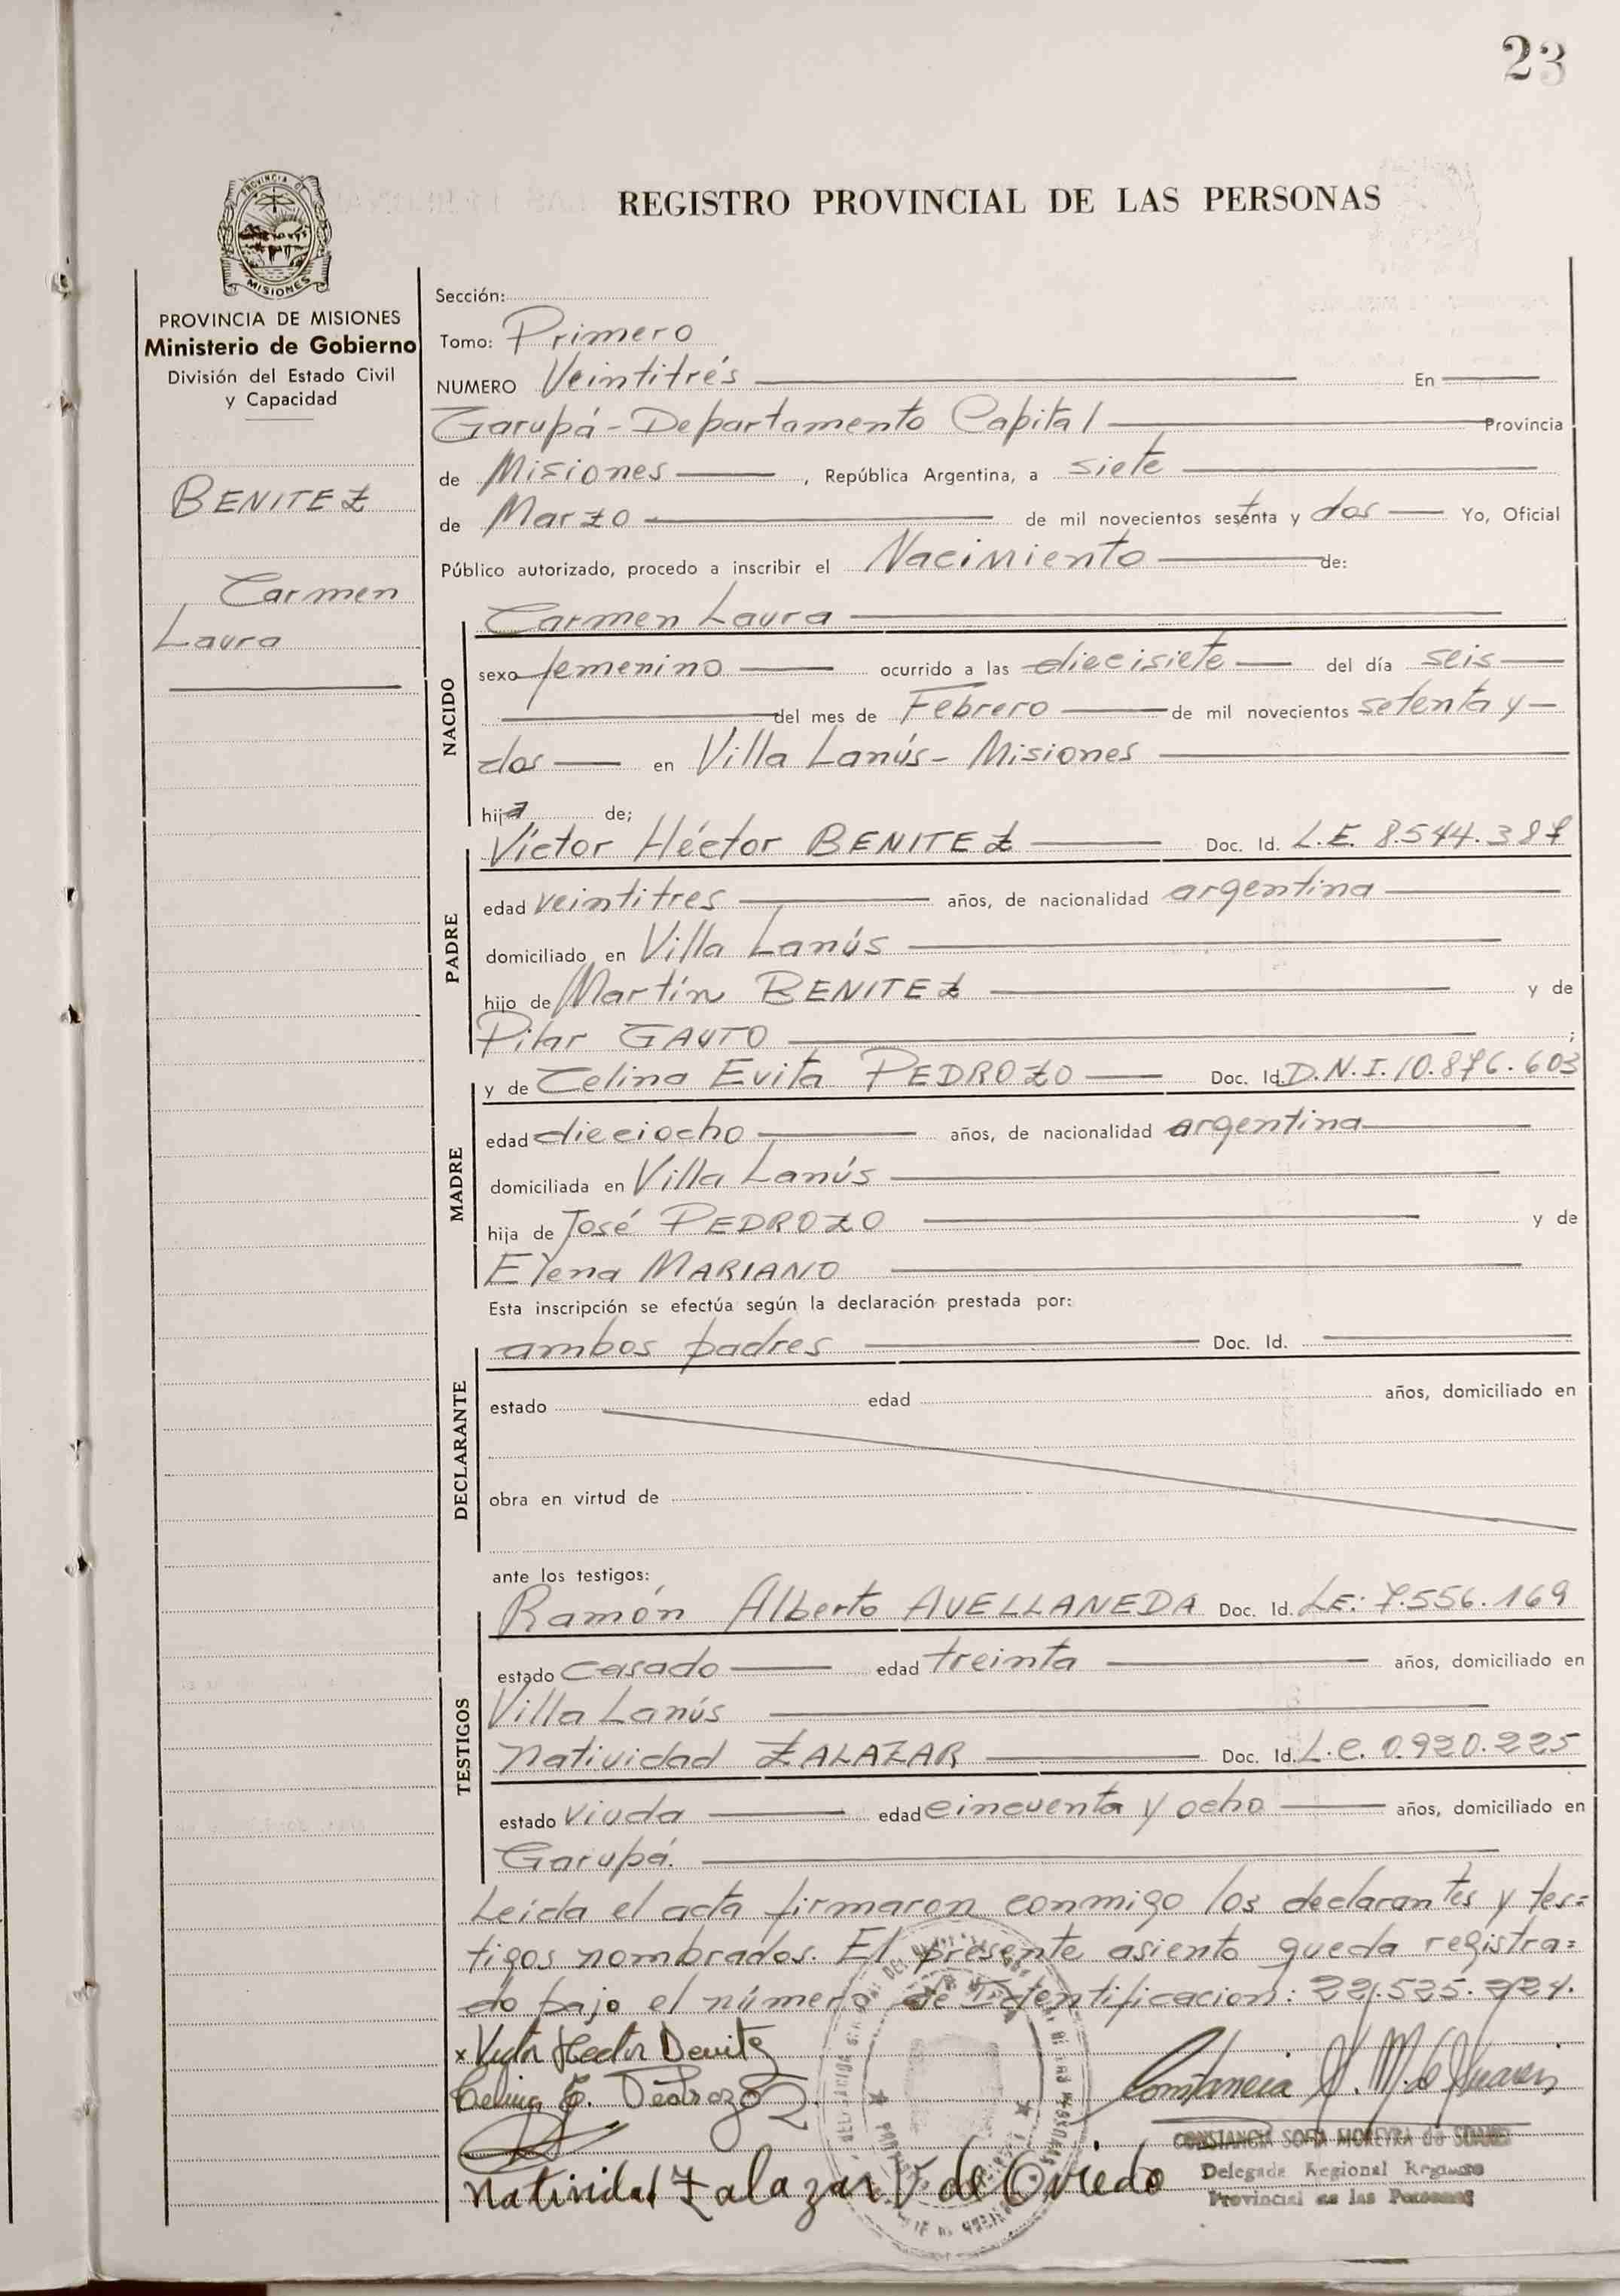 23
PROVINCIA DE
MISIONES
REGISTRO PROVINCIAL DE LAS PERSONAS
PROVINCIA DE MISIONES
Ministerio de Gobierno
División del Estado Civil
y Capacidad
BENITEZ
Carmen
Laura
Sección:
Tomo: Primero
NUMERO Veintitrés En
Garupá - Departamento Capital Provincia
de Misiones , República Argentina, a siete
de Marzo de mil novecientos sesenta y dos Yo, Oficial
Público autorizado, procedo a inscribir el Nacimiento de:
Carmen Laura
NACIDO
sexo femenino ocurrido a las diecisiete del día seis
del mes de Febrero de mil novecientos setenta y
dos en Villa Lanús - Misiones
hija de;
Víctor Héctor BENITEZ Doc. Id. L.E. 8.544.387
PADRE
edad veintitres años, de nacionalidad argentina
domiciliado en Villa Lanús
hijo de Martín BENITEZ y de
Pilar GAUTO ;
y de Celina Evita PEDROZO Doc. Id. D.N.I. 10.876.603
MADRE
edad dieciocho años, de nacionalidad argentina
domiciliada en Villa Lanús
hija de José PEDROZO y de
Elena MARIANO
Esta inscripción se efectúa según la declaración prestada por:
ambos padres Doc. Id.
DECLARANTE
estado edad años, domiciliado en
obra en virtud de
ante los testigos:
Ramón Alberto AVELLANEDA Doc. Id. LE: 7.556.169
TESTIGOS
estado casado edad treinta años, domiciliado en
Villa Lanús
Natividad ZALAZAR Doc. Id. L.C. 0.920.225
estado viuda edad cincuenta y ocho años, domiciliado en
Garupá.
Leída el acta firmaron conmigo los declarantes y tes=
tigos nombrados. El presente asiento queda registra=
do bajo el número de Identificacion: 22.525.224.
x Victor Hector Benitez
Celina E. Pedrozo
Constancia S. M. de Suarez
CONSTANCIA SOFIA MOREYRA de SUAREZ
Delegada Regional Registro
Provincial de las Personas
Natividad Zalazar V. de Oviedo